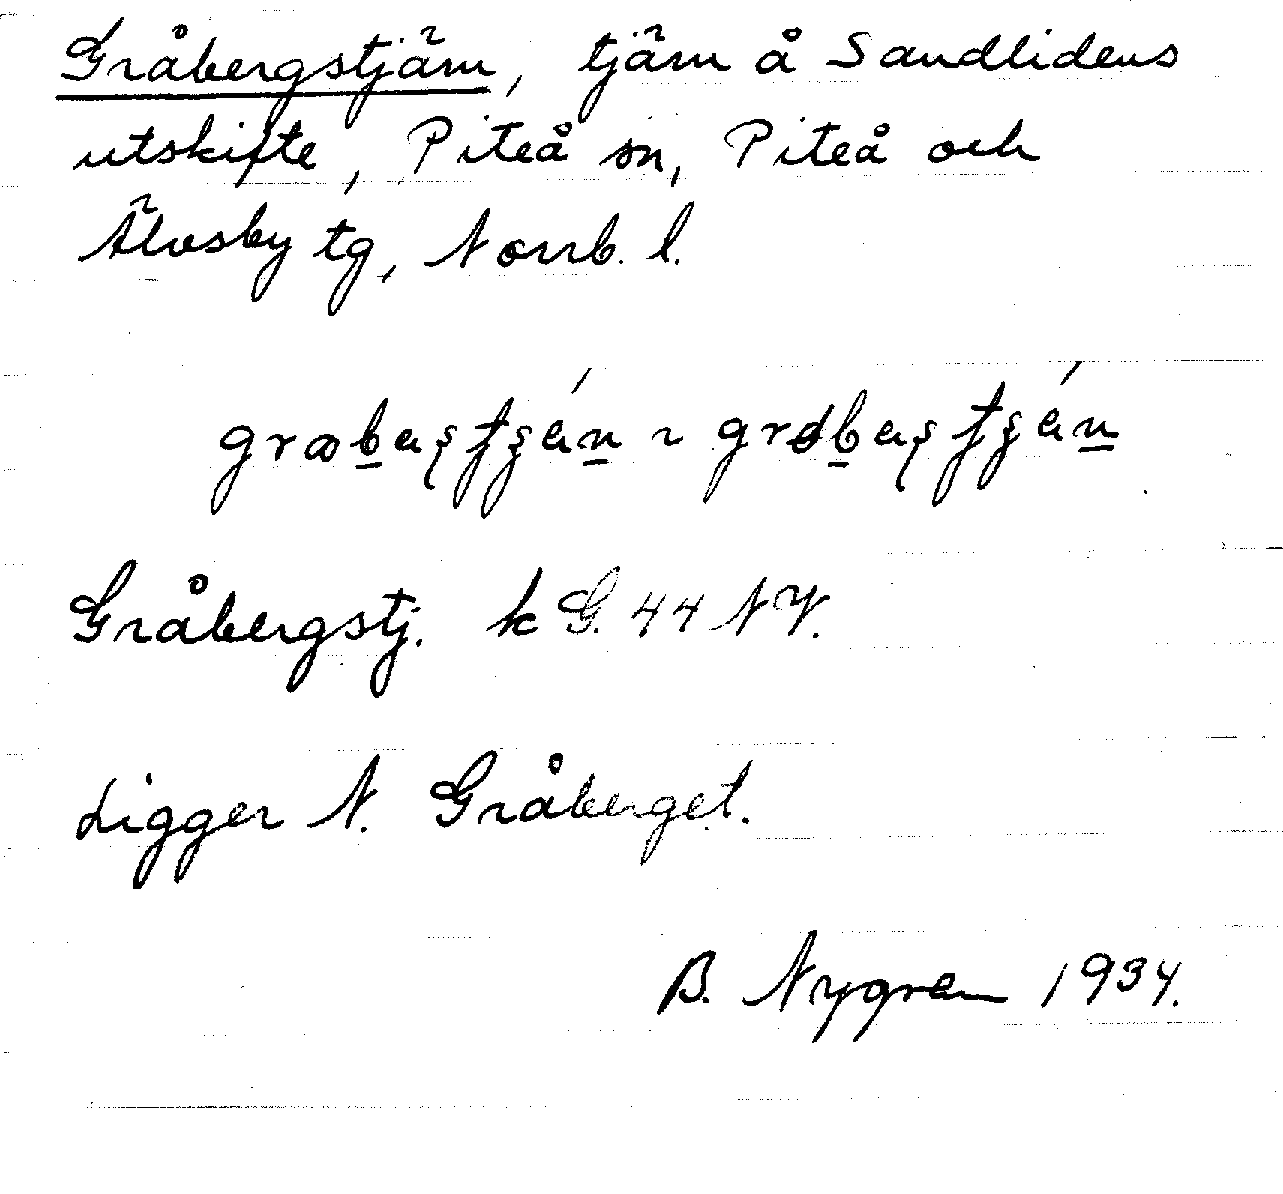 Gråbergstjärn, tjärn å Sandlidens
utskifte, Piteå sn, Piteå och
Älvsby tg, Norrb. l.
Gråbergstj. k G. 44 NV.
Ligger N. Gråberget.
B. Nygren 1934.